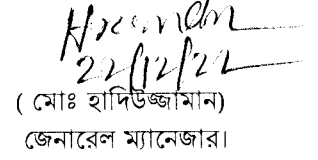 22/12/22
( মোঃ হাদিউজ্জামান)
জেনারেল ম্যানেজার।